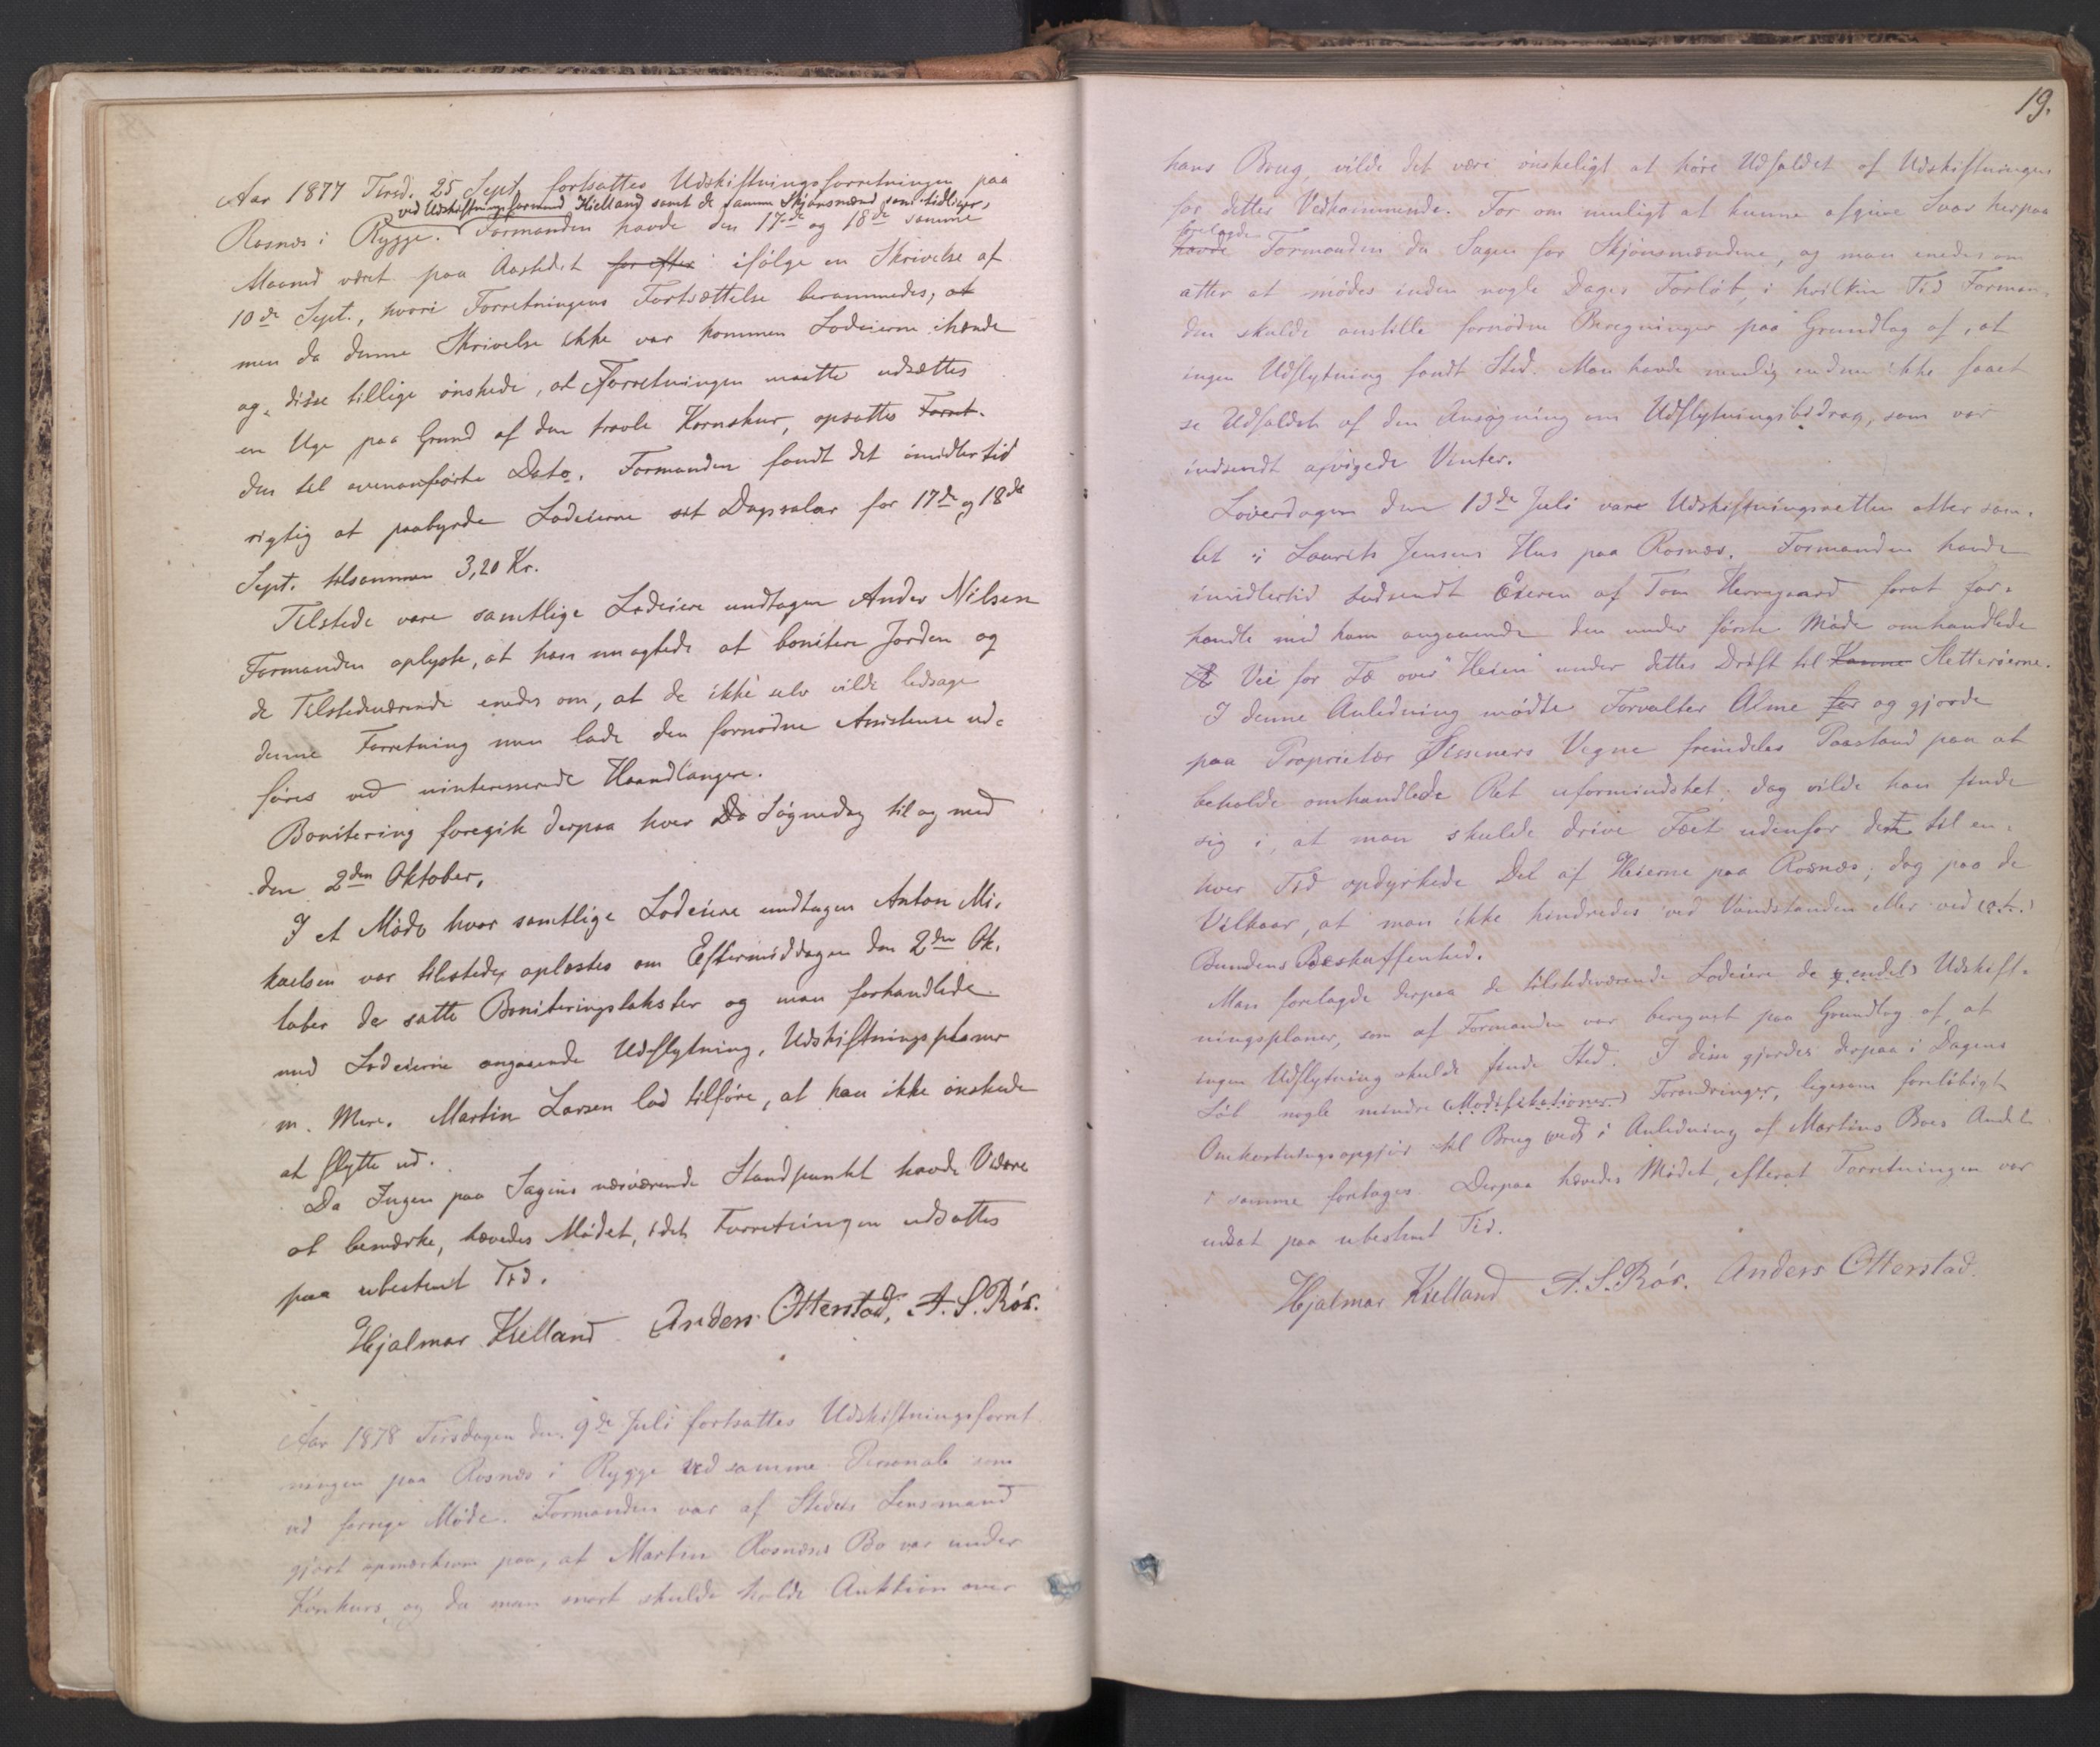 Aar 1877 Tirsd. 25 Sept. fortsattes Udskiftningsforretningen paa
ved Udskiftningsformand Kielland samt de samme Skjønsmænd som tidligere,
Rosnæs i Rygge. Formanden havde den 17de og 18de samme
Maaned været paa Aastedet for efter ifølge en Skrivelse af
10de Sept., hvori Forretningens Fortsættelse berammedes, at
men da denne Skrivelse ikke var kommen Lodeierne ihænde
og disse tillige ønskede, at Forretningen maatte udsættes
en Uge paa Grund af den travle Kornskur, opsattes Forret-
den til ovenanførte Dato. Formanden fandt det imidlertid
rigtig at paabyrde Lodeierne sit Dagsalar for 17de og 18de
Sept. tilsammen 3,20 Kr.
Tilstede vare samtlige Lodeiere undtagen Anders Nilsen
Formanden oplyste, at han unagtede at bonitere Jorden og
de Tilstedeværende enedes om, at de ikke selv vilde ledsage
denne Forretning men lade den fornødne Assistense ud-
føres ved uinteresserede Haandlangere.
Bonitering foregik derpaa hver Da Søgnedag til og med
den 2den Oktober.
I et Møde hvor samtlige Lodeiere undtagen Anton Mi-
kaelsen var tilstede, oplæstes om Eftermiddagen den 2den Ok-
tober de satte Boniteringstakster og man forhandlede
med Lodeierne angaaende Udflytning, Udskiftningsplaner
m. Mere. Martin Larsen lod tilføre, at han ikke ønskede
at flytte ud.
Da Ingen paa Sagens nærværende Standpunkt havde Videre
at bemærke, hævedes Mødet, idet Forretningen udsattes
paa ubestemt Tid.
Hjalmar Kielland Anders Otterstad, A. S. Rør.
Aar 1878 Tirsdagen den 9de Juli fortsattes Udskiftningsforret-
ningen paa Rosnæs i Rygge ved samme Personale som
ved forrige Møde. Formanden var af Stedets Lensmand
gjort opmærksom paa, at Martin Rosnæs's Bo var under
Konkurs, og da man snart skulde holde Auktion over
19.
hans Brug, vilde det være ønskeligt at høre Udfaldet af Udskiftningen
for dettes Vedkommende. For om muligt at kunne afgive Svar herpaa
forelagde
havde Formanden da Sagen for Skjønsmændene, og man enedes om
atter at mødes inden nogle Dages Forløb, i hvilken Tid Forman-
den skulde anstille fornødne Beregninger paa Grundlag af, at
ingen Udflytning fandt Sted. Man havde nemlig endnu ikke faaet
se Udfaldet af den Ansøgning om Udflytningsbidrag, som var
indsendt afvigede Vinter.
Løverdagen den 13de Juli vare Udskiftningsretten atter sam-
let i Laurits Jensens Hus paa Rosnæs. Formanden havde
imidlertid tudsendt Eieren af Tom Herregaard forat for-
handle med ham angaaende den under første Møde omhandlede
Vei for Fæ over "Heien" under dettes Drift til Kanne Sletterøerne.
I denne Anledning mødte Forvalter Alme for og gjorde
paa Proprietær Sisseners Vegne fremdeles Paastand paa at
beholde omhandlede Ret uformindsket; dog vilde han finde
sig i, at man skulde drive Fæet udenfor den til en-
hver Tid opdyrkede Del af Heierne paa Rosnæs; dog paa de
Vilkaar, at man ikke hindredes ved Vandstanden eller ved (et.)
Bundens Beskaffenhed.
Man forelagde derpaa de tilstedeværende Lodeiere de endel Udskift-
ningsplaner, som af Formanden var beregnet paa Grundlag af, at
ingen Udflytning skulde finde Sted. I disse gjordes derpaa i Dagens
Løb nogle mindre (Modifikationer) Forandringer, ligesom foreløbigt
Omkostningsopgjør til Brug (ved) i Anledning af Martins Boes Andel
i samme foretoges. Derpaa hævedes Mødet, efterat Forretningen var
udsat paa ubestemt Tid.
Hjalmar Kielland A. S. Rør. Anders Otterstad.